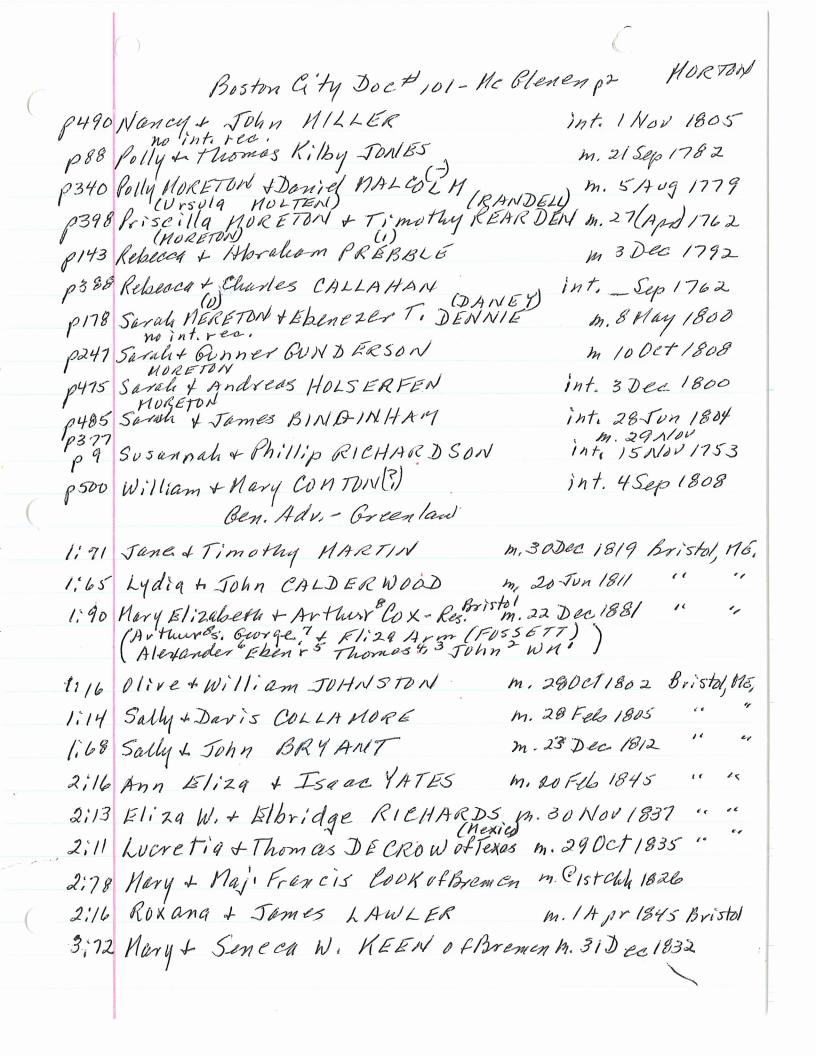 Boston City Doc# 101 - McGlenen p2 MORTON
p490 Nancy + John MILLER int. 1 Nov 1805
no int. rec.
p88 Polly + Thomas Kilby JONES m. 21 Sep 1782
(-)
p340 Polly MORETON + Daniel MALCOLM m. 5 Aug 1779
(Ursula MOLTEN) (RANDELL)
p398 Priscilla MORETON + Timothy REARDEN m. 27 (Apr) 1762
(MORETON) (1)
p143 Rebecca + Abraham PREBBLE m 3 Dec 1792
p388 Rebecca + Charles CALLAHAN int. _ Sep 1762
(0) (DANEY)
p178 Sarah MERETON + Ebenezer T. DENNIE m. 8 May 1800
no int. rec.
p247 Sarah + Gunner GUNDERSON m 10 Oct 1808
MORETON
p475 Sarah + Andreas HOLSERFEN int. 3 Dec 1800
MORETON
p485 Sarah + James BINGINHAM int. 28 Jun 1804
p377 m. 29 Nov
p9 Susannah + Phillip RICHARDSON int. 15 Nov 1753
p500 William + Mary CONTON(?) int. 4 Sep 1808
Gen. Adv. - Greenlaw
1:71 Jane + Timothy MARTIN m. 30 Dec 1819 Bristol, ME.
1:65 Lydia + John CALDERWOOD m. 20 Jun 1811 " "
1:90 Mary Elizabeth + Arthur⁸ COX - Res. Bristol m. 22 Dec 1881 " "
(Arthur⁸ s. George⁷ + Eliza Ann (FOSSETT)
Alexander⁶ Eben'r⁵ Thomas⁴ ³ John² Wm¹ )
1:16 Olive + William JOHNSTON m. 28 Oct 1802 Bristol, ME,
1:14 Sally + Davis COLLAMORE m. 28 Feb 1805 " "
1:68 Sally + John BRYANT m. 23 Dec 1812 " "
2:16 Ann Eliza + Isaac YATES m. 20 Feb 1845 " "
2:13 Eliza W. + Elbridge RICHARDS m. 30 Nov 1837 " "
(Mexico)
2:11 Lucretia + Thomas DECROW of Texas m. 29 Oct 1835 " "
2:78 Mary + Maj. Francis COOK of Bremen m. @ 1st Chh 1826
2:16 Roxana + James LAWLER m. 1 Apr 1845 Bristol
3:72 Mary + Seneca W. KEEN of Bremen m. 31 Dec 1832